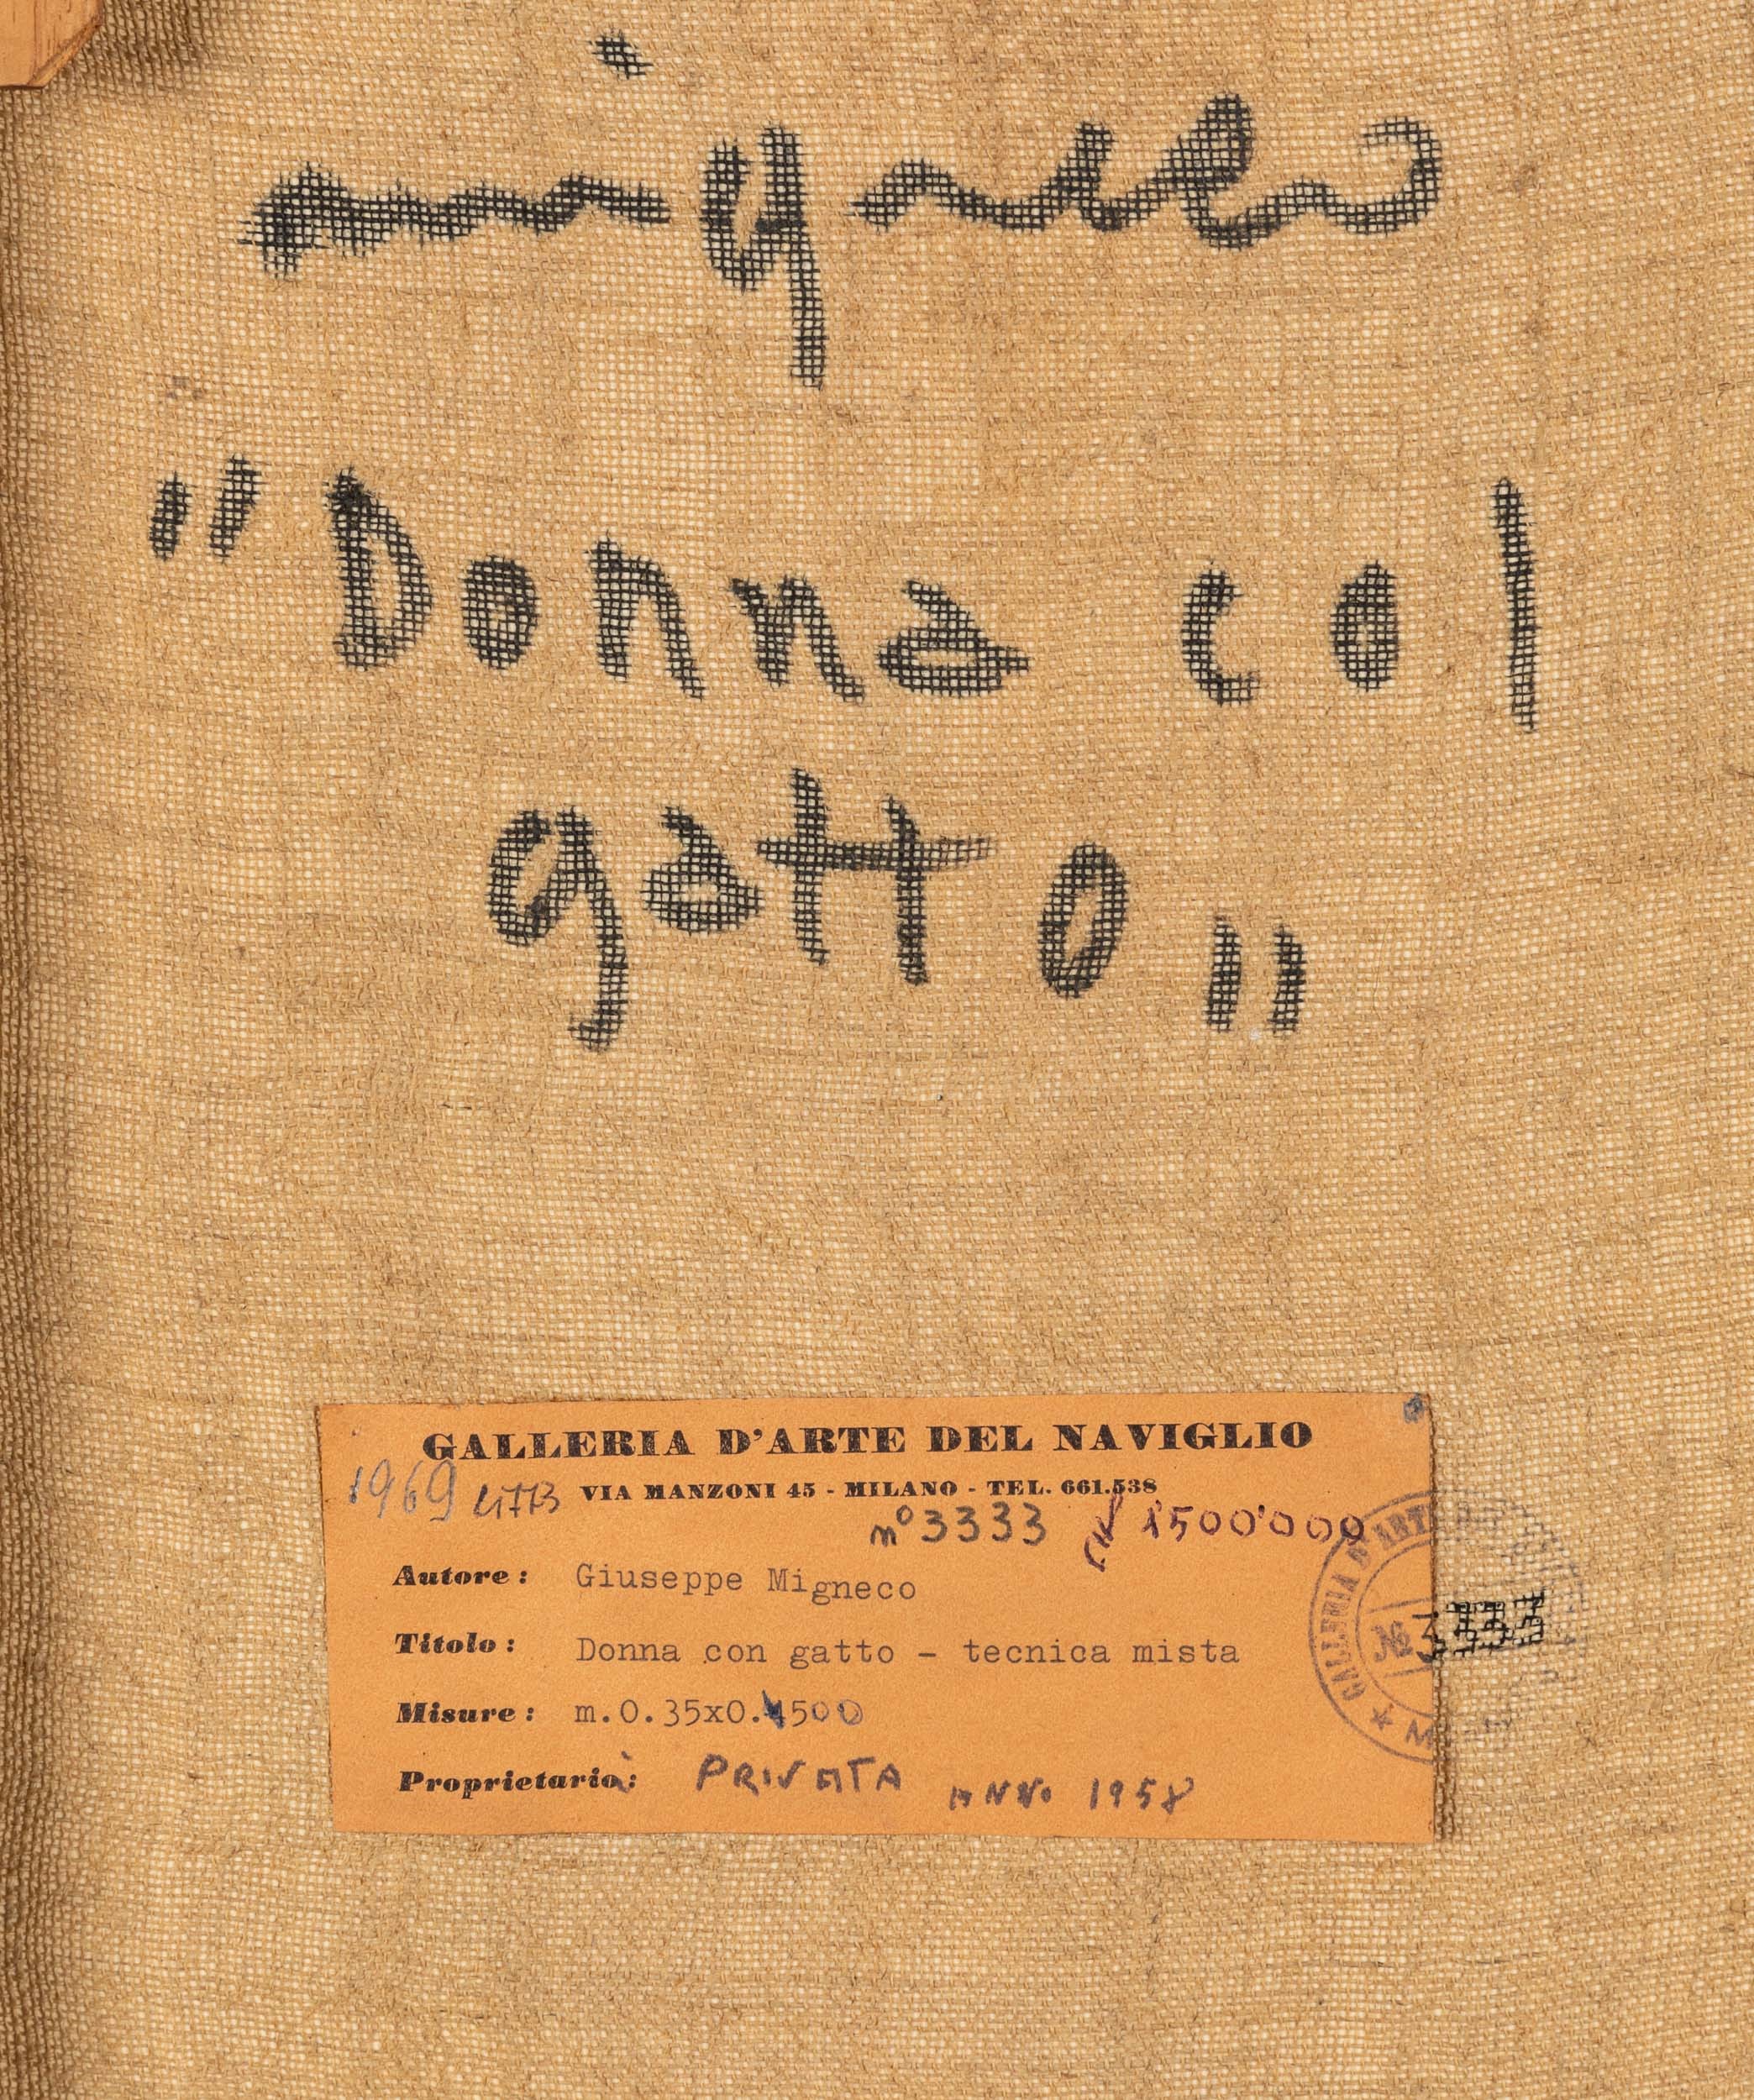 migneco
"Donna col
gatto"
GALLERIA D'ARTE DEL NAVIGLIO
1969 VIA MANZONI 45 - MILANO - TEL. 661.538
n° 3333 1500'000
Autore: Giuseppe Migneco
Titolo: Donna con gatto - tecnica mista
Misure: m.0.35x0.500
Proprietario: PRIVATA ANNO 1958
GALLERIA D'ART
№ 3333